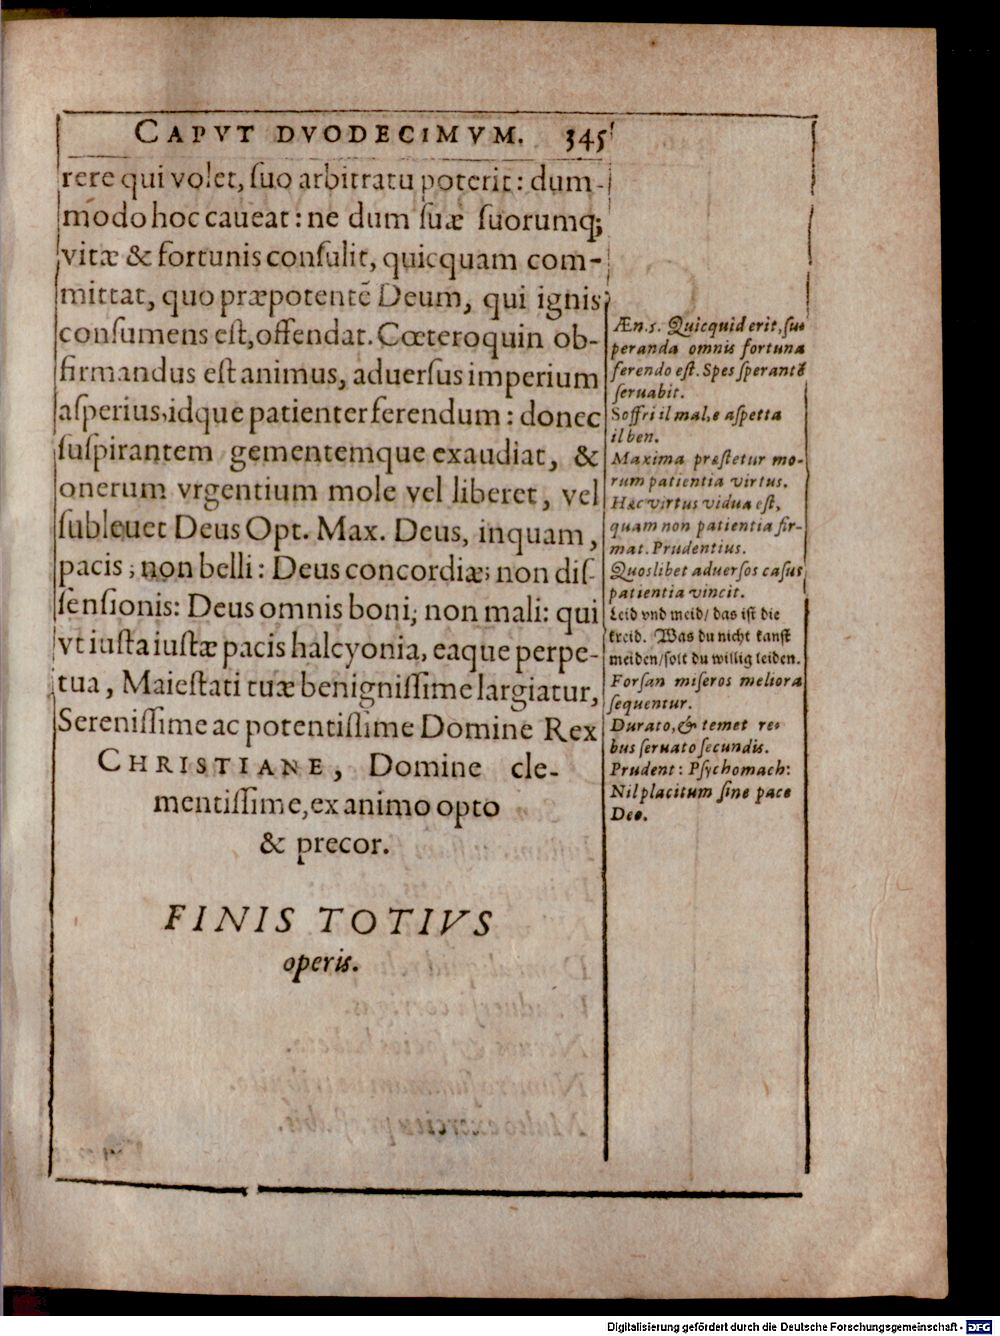 CAPVT DVODECIMVM. 345
rere qui volet, suo arbitratu poterit: dum-
modo hoc caueat: ne dum suæ suorumq;
vitæ & fortunis consulit, quicquam com-
mittat, quo præpotentẽ Deum, qui ignis
consumens est, offendat. Cœteroquin ob-
firmandus est animus, aduersus imperium
asperius, idque patienter ferendum: donec
suspirantem gementemque exaudiat, &
onerum vrgentium mole vel liberet, vel
subleuet Deus Opt. Max. Deus, inquam,
pacis; non belli: Deus concordiæ; non dis-
sensionis: Deus omnis boni; non mali: qui
vt iusta iustæ pacis halcyonia, eaque perpe-
tua, Maiestati tuæ benignissime largiatur,
Serenissime ac potentissime Domine Rex
CHRISTIANE, Domine cle-
mentissime, ex animo opto
& precor.
FINIS TOTIVS
operis.
Æn. 5. Quicquid erit, su-
peranda omnis fortuna
ferendo est. Spes sperantẽ
seruabit.
Soffri il mal, e aspetta
il ben.
Maxima præstetur mo-
rum patientia virtus.
Hæc virtus vidua est,
quam non patientia fir-
mat. Prudentius.
Quoslibet aduersos casus
patientia vincit.
Leid vnd meid/ das ist die
kreid. Was du nicht kanst
meiden/ solt du willig leiden.
Forsan miseros meliora
sequentur.
Durato, & temet re-
bus seruato secundis.
Prudent: Psychomach:
Nil placitum sine pace
Deo.
Digitalisierung gefördert durch die Deutsche Forschungsgemeinschaft - DFG